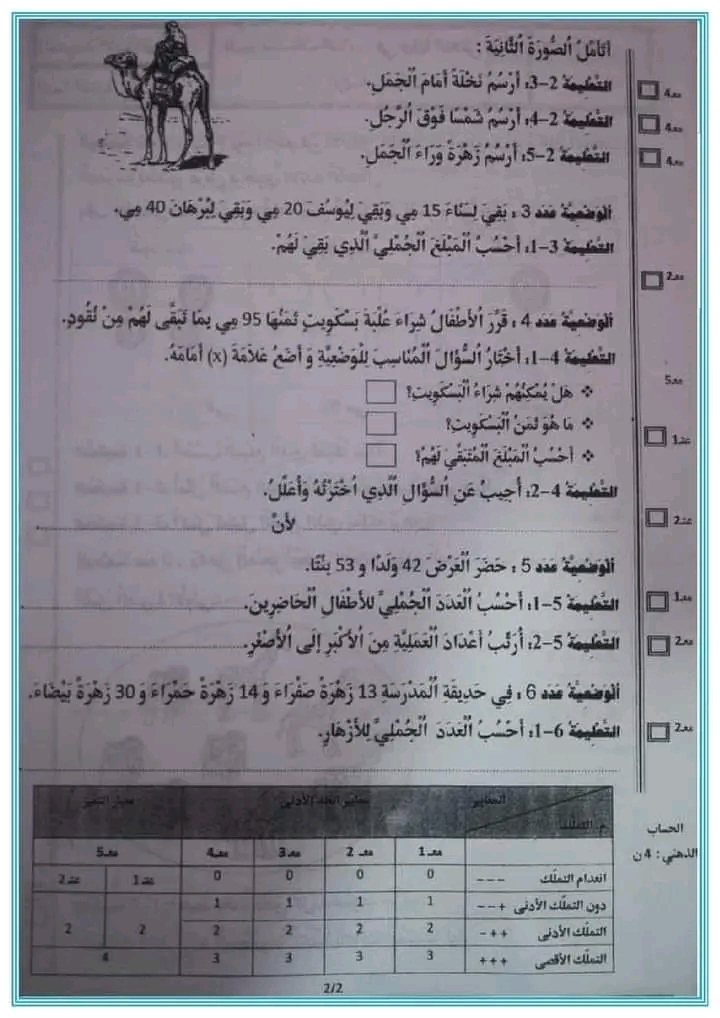 أَتَأَمَّلُ الصُّورَةَ الثَّانِيَةَ :
التَّعْلِيمَةُ 2-3: أَرْسُمُ نَخْلَةً أَمَامَ الْجَمَلِ.
مع4
التَّعْلِيمَةُ 2-4: أَرْسُمُ شَمْسًا فَوْقَ الرَّجُلِ.
مع4
التَّعْلِيمَةُ 2-5: أَرْسُمُ زَهْرَةً وَرَاءَ الْجَمَلِ.
مع4
الْوَضْعِيَّةُ عدد 3 : بَقِيَ لِسَنَاءَ 15 مي وَبَقِيَ لِيُوسُفَ 20 مي وَبَقِيَ لِبُرْهَانَ 40 مي.
التَّعْلِيمَةُ 3-1: أَحْسُبُ الْمَبْلَغَ الْجُمْلِيَّ الَّذِي بَقِيَ لَهُمْ.
مع2
الْوَضْعِيَّةُ عدد 4 : قَرَّرَ الْأَطْفَالُ شِرَاءَ عُلْبَةَ بَسْكَوِيتٍ ثَمَنُهَا 95 مي بِمَا تَبَقَّى لَهُمْ مِنْ نُقُودٍ.
التَّعْلِيمَةُ 4-1: أَخْتَارُ السُّؤَالَ الْمُنَاسِبَ لِلْوَضْعِيَّةِ وَ أَضَعُ عَلَامَةَ (x) أَمَامَهُ.
مع5
❖ هَلْ يُمْكِنُهُمْ شِرَاءُ الْبَسْكَوِيتِ؟
❖ مَا هُوَ ثَمَنُ الْبَسْكَوِيتِ؟
عنـ1
❖ أَحْسُبُ الْمَبْلَغَ الْمُتَبَقِّيَ لَهُمْ؟
التَّعْلِيمَةُ 4-2: أُجِيبُ عَنِ السُّؤَالِ الَّذِي اخْتَرْتُهُ وَأُعَلِّلُ.
عنـ2
لأنّ
الْوَضْعِيَّةُ عدد 5 : حَضَرَ الْعَرْضَ 42 وَلَدًا و 53 بِنْتًا.
التَّعْلِيمَةُ 5-1: أَحْسُبُ الْعَدَدَ الْجُمْلِيَّ لِلْأَطْفَالِ الْحَاضِرِينَ.
مع1
التَّعْلِيمَةُ 5-2: أُرَتِّبُ أَعْدَادَ الْعَمَلِيَّةِ مِنَ الْأَكْبَرِ إِلَى الْأَصْغَرِ.
مع2
الْوَضْعِيَّةُ عدد 6 : فِي حَدِيقَةِ الْمَدْرَسَةِ 13 زَهْرَةً صَفْرَاءَ وَ 14 زَهْرَةً حَمْرَاءَ وَ 30 زَهْرَةً بَيْضَاءَ.
التَّعْلِيمَةُ 6-1: أَحْسُبُ الْعَدَدَ الْجُمْلِيَّ لِلْأَزْهَارِ.
مع2
المعايير معايير الحد الأدنى معيار التميز
م التملك
مع1 مع2 مع3 مع4 مع5
انعدام التملّك --- 0 0 0 0 عنـ1 عنـ2
دون التملّك الأدنى +-- 1 1 1 1
التملّك الأدنى ++- 2 2 2 2 2 2
التملّك الأقصى +++ 3 3 3 3 4
الحساب
الذهني: 4ن
2/2